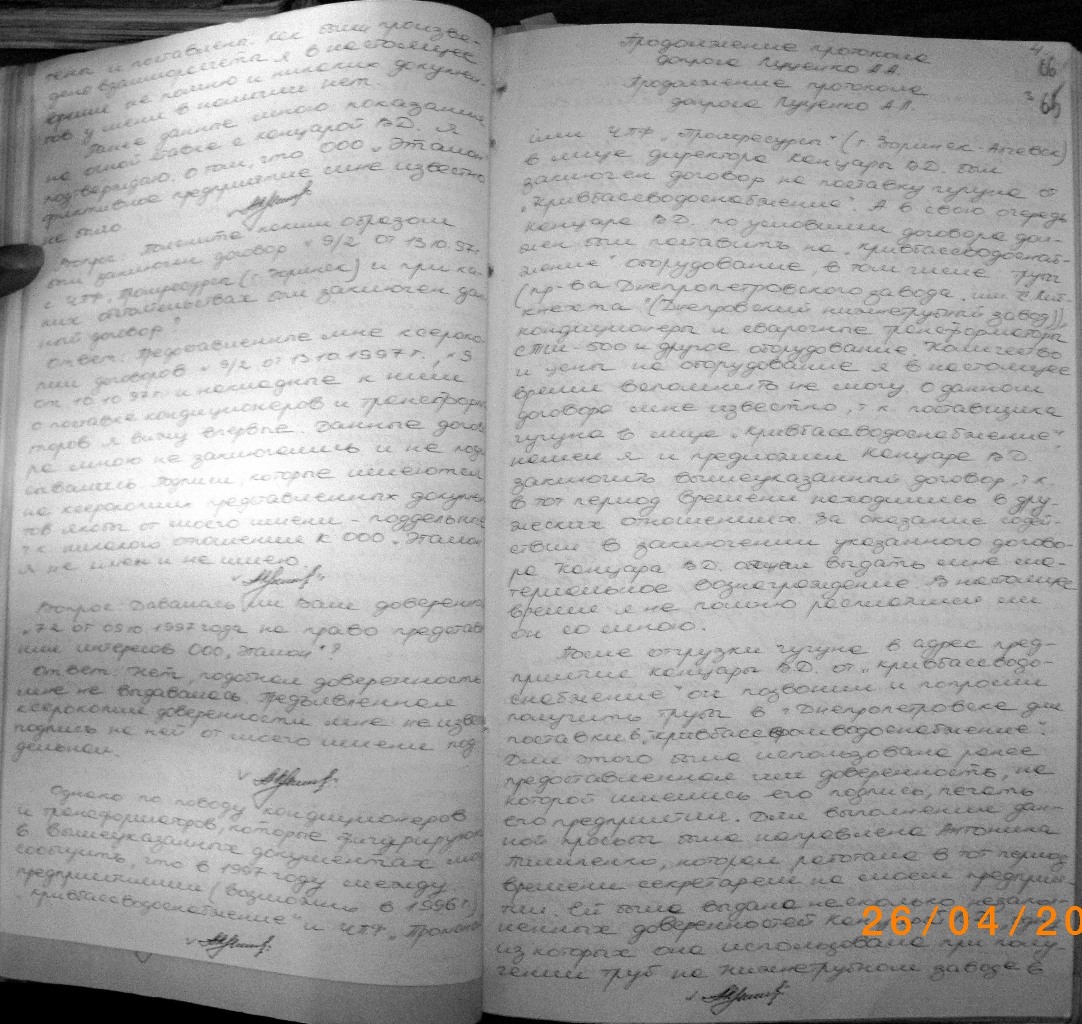 чены и поставлена. Как были произве-
дены взаиморасчеты я в настоящее
время не помню и никаких докумен-
тов у меня в наличии нет.
Ранее данные мною показания
на очной ставке с Канцарой В.Д. я
подтверждаю. О том, что ООО „Эталон"
фиктивное предприятие мне известно
не было
Вопрос: Поясните каким образом
был заключен договор № 9/2 от 13.10.97г.
с ЧПФ „Промресурсы" (г. Зоринск) и при ка-
ких обстоятельствах был заключен дан-
ный договор?
Ответ: Предоставленные мне ксероко-
пии договоров № 9/2 от 13.10.1997 г., № 9
от 10.10.97г. и накладные к ним
о поставке кондиционеров и трансформа
торов я вижу впервые. Данные догово
ра мною не заключались и не подпи
сывались. Подписи, которые имеются
на ксерокопиях представленных докумен
тов якобы от моего имени - поддельные
т.к. никакого отношения к ООО „Эталон
я не имел и не имею
Вопрос: Давалась ли Вам доверенность
№ 72 от 09.10.1997 года на право представле
ния интересов ООО „Эталон"?
Ответ: Нет, подобная доверенность
мне не выдавалась. Предъявленная
ксерокопия доверенности мне не извес
подпись на ней от моего имени под
дельная.
Однако по поводу кондиционеров
и трансформаторов, которые фигурируют
в вышеуказанных документах могу
сообщить, что в 1997 году между
предприятиями (возможно в 1996г.)
„Кривбассводоснабжение" и ЧПФ „Промре
Продолжение протокола
допроса Луценко А.А.
Продолжение протокола
допроса Луценко А.А.
4
66
3
65
ими ЧПФ „Промресурсы" (г. Зоринск-Алчевск)
в лице директора Канцары В.Д. был
заключен договор на поставку чугуна от
„Кривбассводоснабжение". А в свою очередь
Канцара В.Д. по условиям договора дол-
жен был поставить на „Кривбассводоснаб-
жение" оборудование, в том числе трубы
(пр-ва Днепропетровского завода „им. К. Либ-
кнехта" (Днепровский нижнетрубный завод))
кондиционеры и сварочные трансформаторы
СТШ-500 и другое оборудование. Количество
и цены на оборудование я в настоящее
время вспомнить не могу. О данном
договоре мне известно, т.к. поставщика
чугуна в лице „Кривбассводоснабжение"
нашел я и предложил Канцаре В.Д.
заключить вышеуказанный договор, т.к.
в тот период времени находились в дру-
жеских отношениях. За оказание содей-
ствия в заключении указанного догово-
ра Канцара В.Д. обещал выдать мне ма-
териальное вознаграждение. В настоящее
время я не помню расплатился ли
он со мною.
После отгрузки чугуна в адрес пред-
приятие Канцары В.Д. от „Кривбассводо-
снабжение" он позвонил и попросил
получить трубы в г. Днепропетровске для
поставки в „Кривбассводоснабжение".
Для этого была использована ранее
предоставленная им доверенность, на
которой имелись его подпись, печать
его предприятия. Для выполнения дан-
ной просьбы была направлена Антонина
Тимпенко, которая работала в тот период
времени секретарем на моем предприя-
тии. Ей было выдано несколько незапол-
ненных доверенностей
из которых она использовала при полу-
чении труб на нижнетрубном заводе в
26/04/20